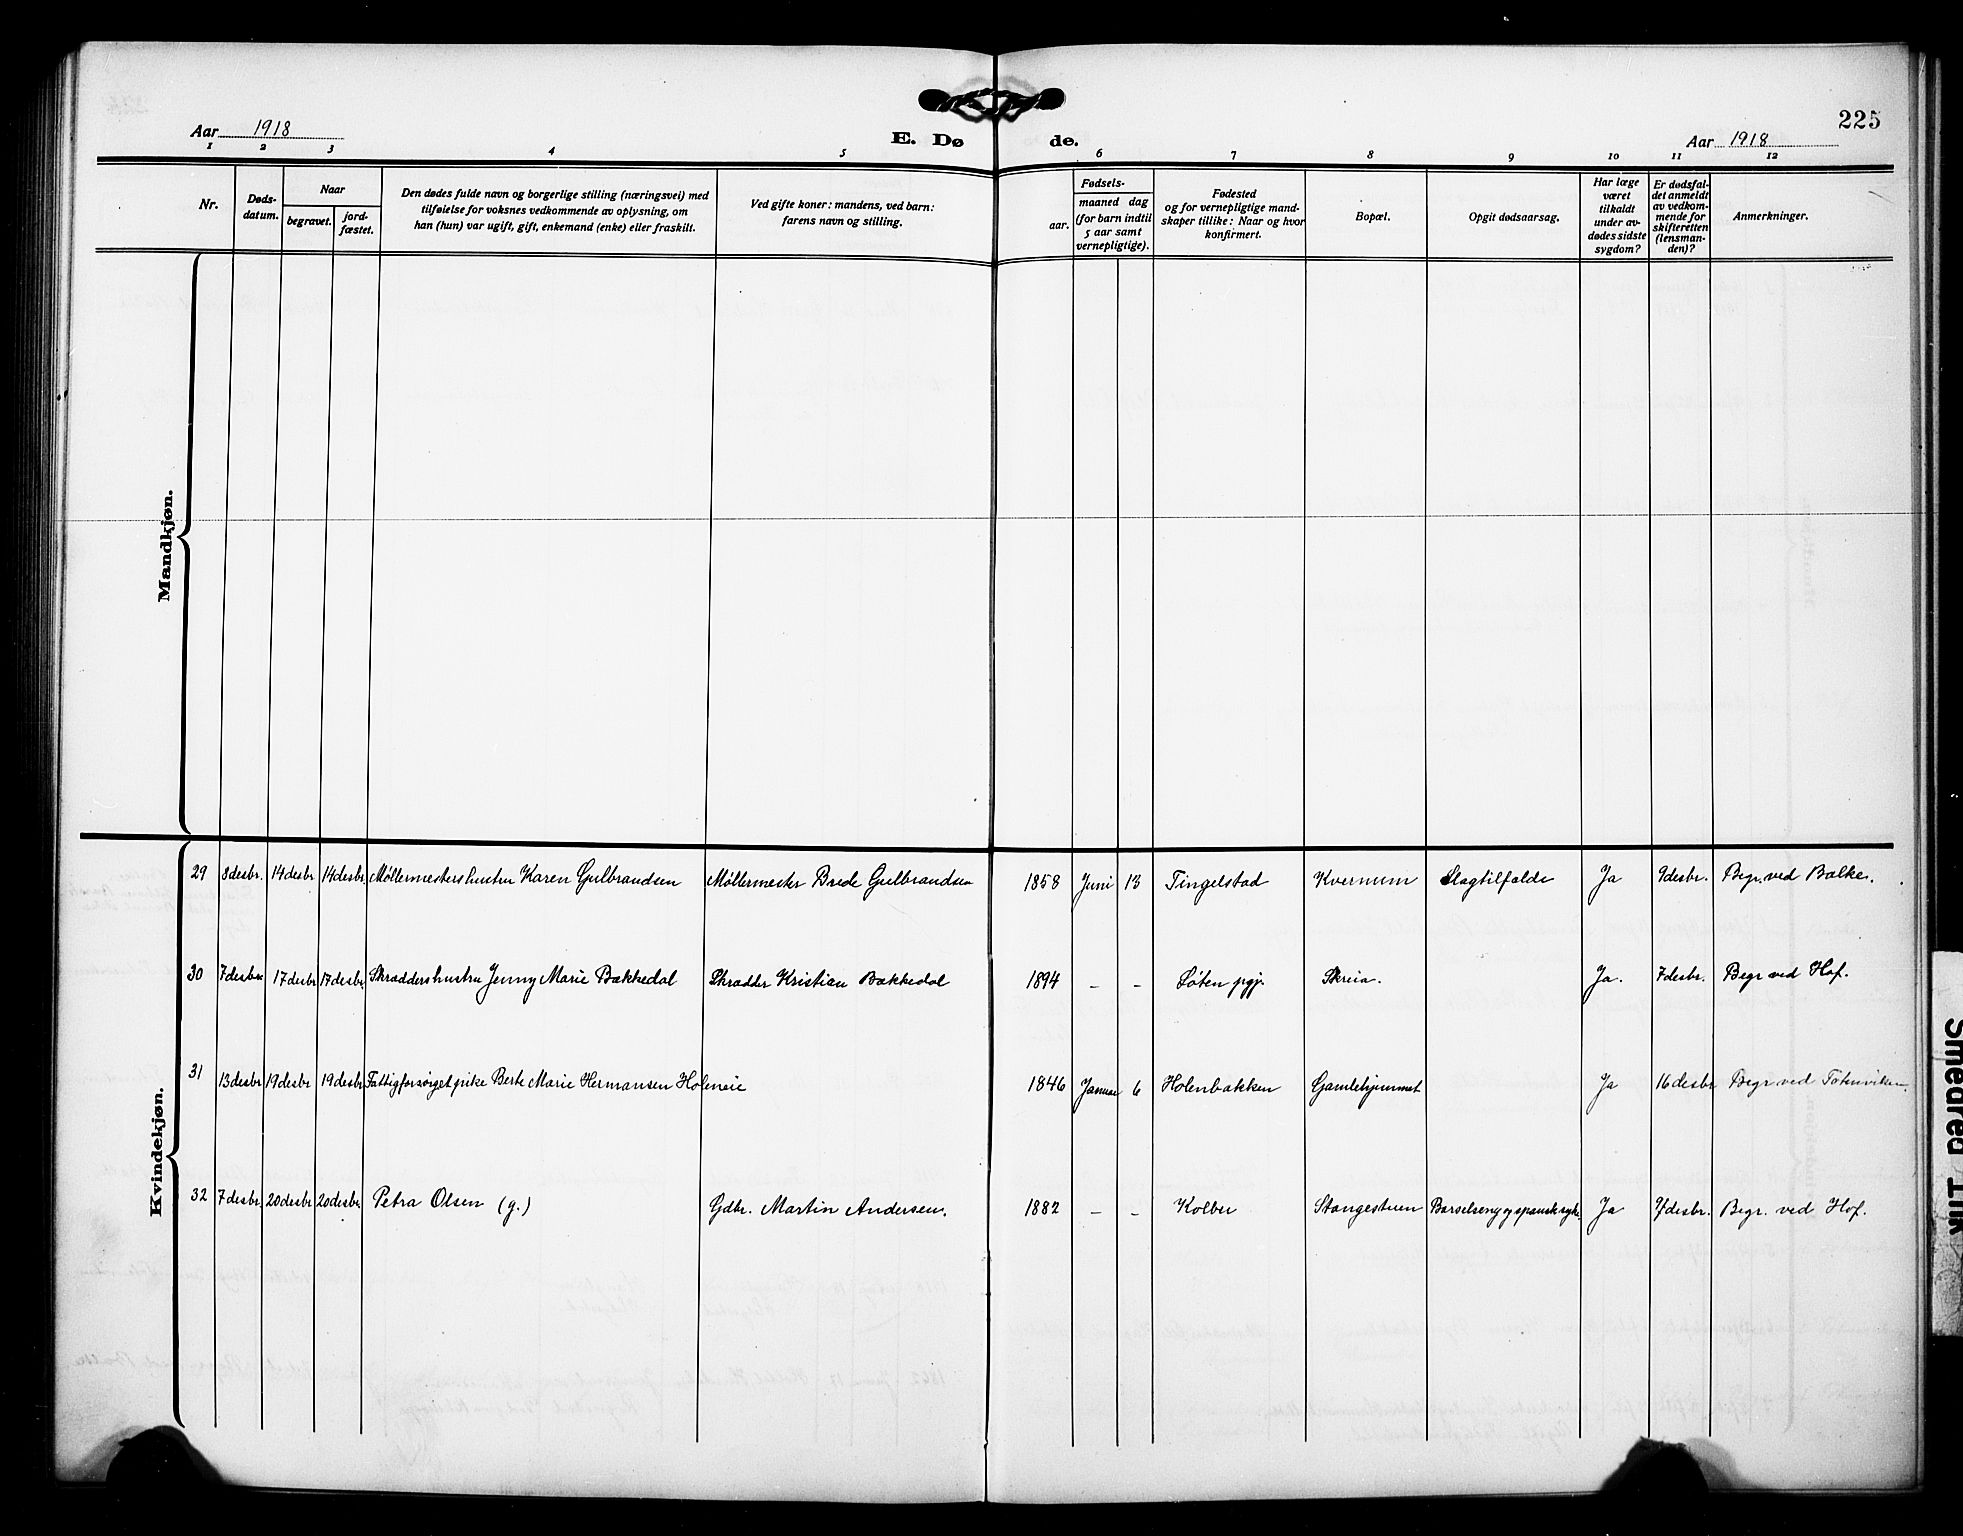 225
Aar 1918
E. Døde.
Aar 1918
1 2 3 4 5 6 7 8 9 10 11 12
Nr.
Døds-
datum.
Naar
begravet.
jord-
fæstet.
Den dødes fulde navn og borgerlige stilling (næringsvei) med
tilføielse for voksnes vedkommende av oplysning, om
han (hun) var ugift, gift, enkemand (enke) eller fraskilt.
Ved gifte koner: mandens, ved barn:
farens navn og stilling.
Fødsels-
aar.
maaned dag
(for barn indtil
5 aar samt
vernepligtige).
Fødested
og for vernepligtige mand-
skaper tillike: Naar og hvor
konfirmert.
Bopæl.
Opgit dødsaarsag.
Har læge
været
tilkaldt
under av-
dødes sidste
sygdom?
Er dødsfal-
det anmeldt
av vedkom-
mende for
skifteretten
(lensman-
den)?
Anmerkninger.
Mandkjøn.
Kvindekjøn.
29 8 desbr. 14 desbr 14 desbr. Møllermestershustru Karen Gulbrandsen Møllermester Brede Gulbrandsen 1858 Juni 13 Tingelstad Kvernum Slagtilfælde Ja 9 desbr. Begr. ved Balke.
30 7 desbr 17 desbr 17 desbr. Skræddershustru Jenny Marie Bakkedal Skrædder Kristian Bakkedal 1894 – – Løten pgj. Skreia. Ja. 7 desbr. Begr ved Hof.
31 13 desbr 19 desbr 19 desbr Fattigforsørget pike Berte Marie Hermansen Holeneie 1846 Januar 6 Holenbakken Gamlehjemmet Ja 16 desbr Begr ved Totenviken.
32 7 desbr. 20 desbr 20 desbr. Petra Olsen (g.) Gdbr. Martin Andersen. 1882 – – Kolbu Stangestuen Barselseng og spansk syke. Ja desbr. Begr. ved Hof.
Smeared Ink